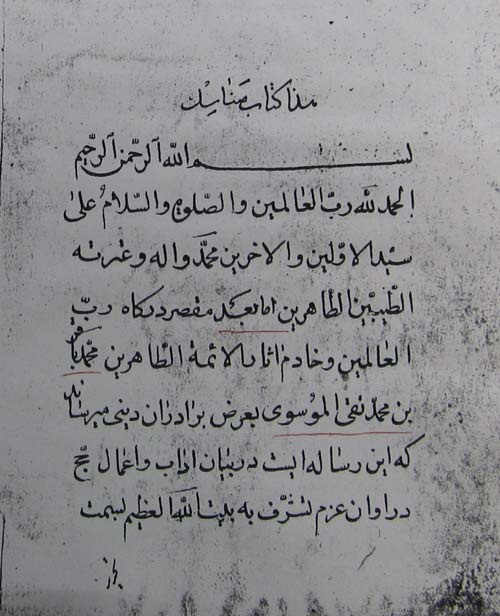 هذا كتاب مناسك
بسم الله الرّحمن الرّحيم
الحمد لله ربّ العالمين والصّلوة والسّلام على
سيّد الاوّلين والاخرين محمّد واله وعترته
الطّيبين الطّاهرين امابعد مقصر درگاه ربّ
العالمين وخادم اثار الائمة الطّاهرين محمّد باقر
بن محمّد تقى الموسوى بعرض برادران دينى ميرساند
كه اين رساله ايست در بيان اداب واعمال حجّ
در اوان عزم تشرّف به بيت الله العظيم بسمت